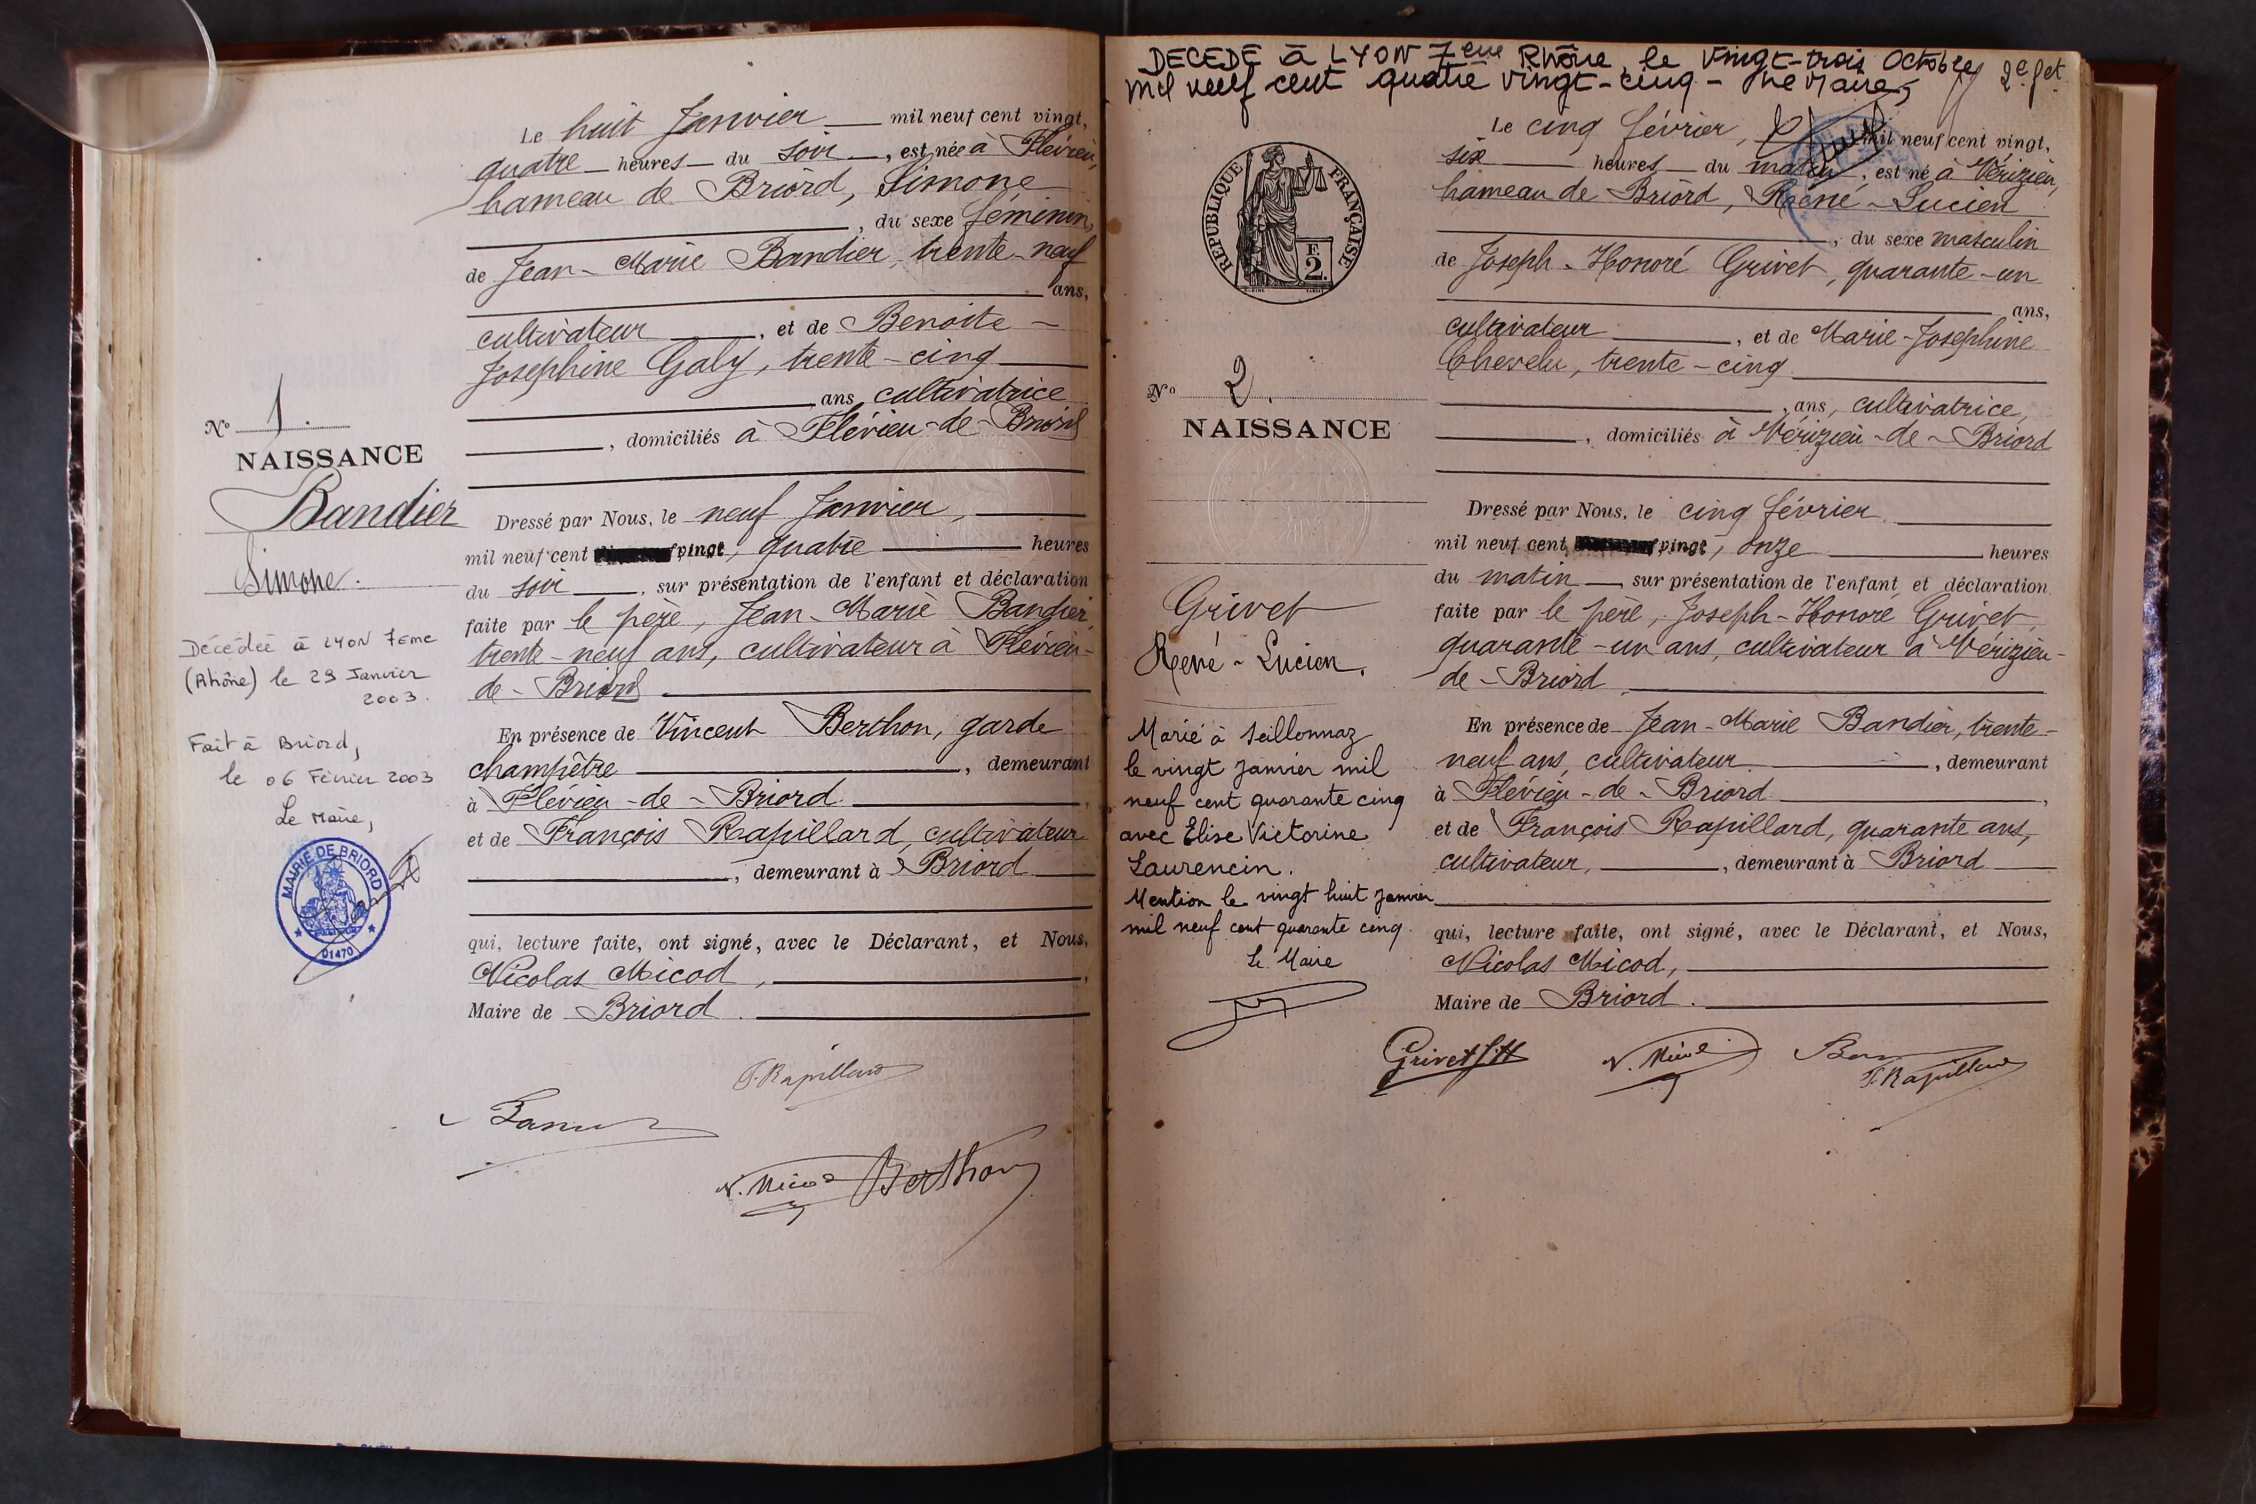 Le huit Janvier mil neuf cent vingt,
quatre heures du soir, est née à Flévieu,
hameau de Briord, Simone
, du sexe féminin,
de Jean-Marie Bandier, trente-neuf
ans,
cultivateur, et de Benoite-
Josephine Galy, trente-cinq
ans, cultivatrice
, domiciliés à Flévieu-de-Briord
No 1.
NAISSANCE
Bandier
Simone.
Décédée à LYON 7ème
(Rhône) le 29 Janvier
2003.
Fait à Briord,
le 06 Février 2003
Le Maire,
MAIRIE DE BRIORD
01470
Dressé par Nous, le neuf Janvier,
mil neuf cent vingt, quatre heures
du soir, sur présentation de l'enfant et déclaration
faite par le père, Jean-Marie Bandier,
trente-neuf ans, cultivateur à Flévieu-
de-Briord
En présence de Vincent Berthon, garde
champêtre, demeurant
à Flévieu-de-Briord,
et de François Rapillard, cultivateur
, demeurant à Briord
qui, lecture faite, ont signé, avec le Déclarant, et Nous,
Nicolas Micod,
Maire de Briord.
F. Rapillard
N. Micod Berthon
DECEDE à LYON 7eme Rhône, le vingt-trois Octobre
mil neuf cent quatre vingt-cinq - Le Maire,
2e fet
REPUBLIQUE FRANÇAISE
F.
2.
Le cinq février, mil neuf cent vingt,
six heures du matin, est né à Vérizieu,
hameau de Briord, René-Lucien
, du sexe masculin
de Joseph-Honoré Grivet, quarante-un
ans,
cultivateur, et de Marie-Josephine
Chevelu, trente-cinq
, ans, cultivatrice,
, domiciliés à Vérizieu-de-Briord
No 2.
NAISSANCE
Grivet
René-Lucien.
Marié à Seillonnaz
le vingt janvier mil
neuf cent quarante cinq
avec Elise Victorine
Laurencin.
Mention le vingt huit janvier
mil neuf cent quarante cinq.
Le Maire
Dressé par Nous, le cinq février
mil neuf cent vingt, onze heures
du matin, sur présentation de l'enfant et déclaration
faite par le père, Joseph-Honoré Grivet,
quarante-un ans, cultivateur à Vérizieu-
de-Briord
En présence de Jean-Marie Bandier, trente-
neuf ans, cultivateur, demeurant
à Flévieu-de-Briord,
et de François Rapillard, quarante ans,
cultivateur, demeurant à Briord
qui, lecture faite, ont signé, avec le Déclarant, et Nous,
Nicolas Micod,
Maire de Briord.
Grivet N. Micod
F. Rapillard